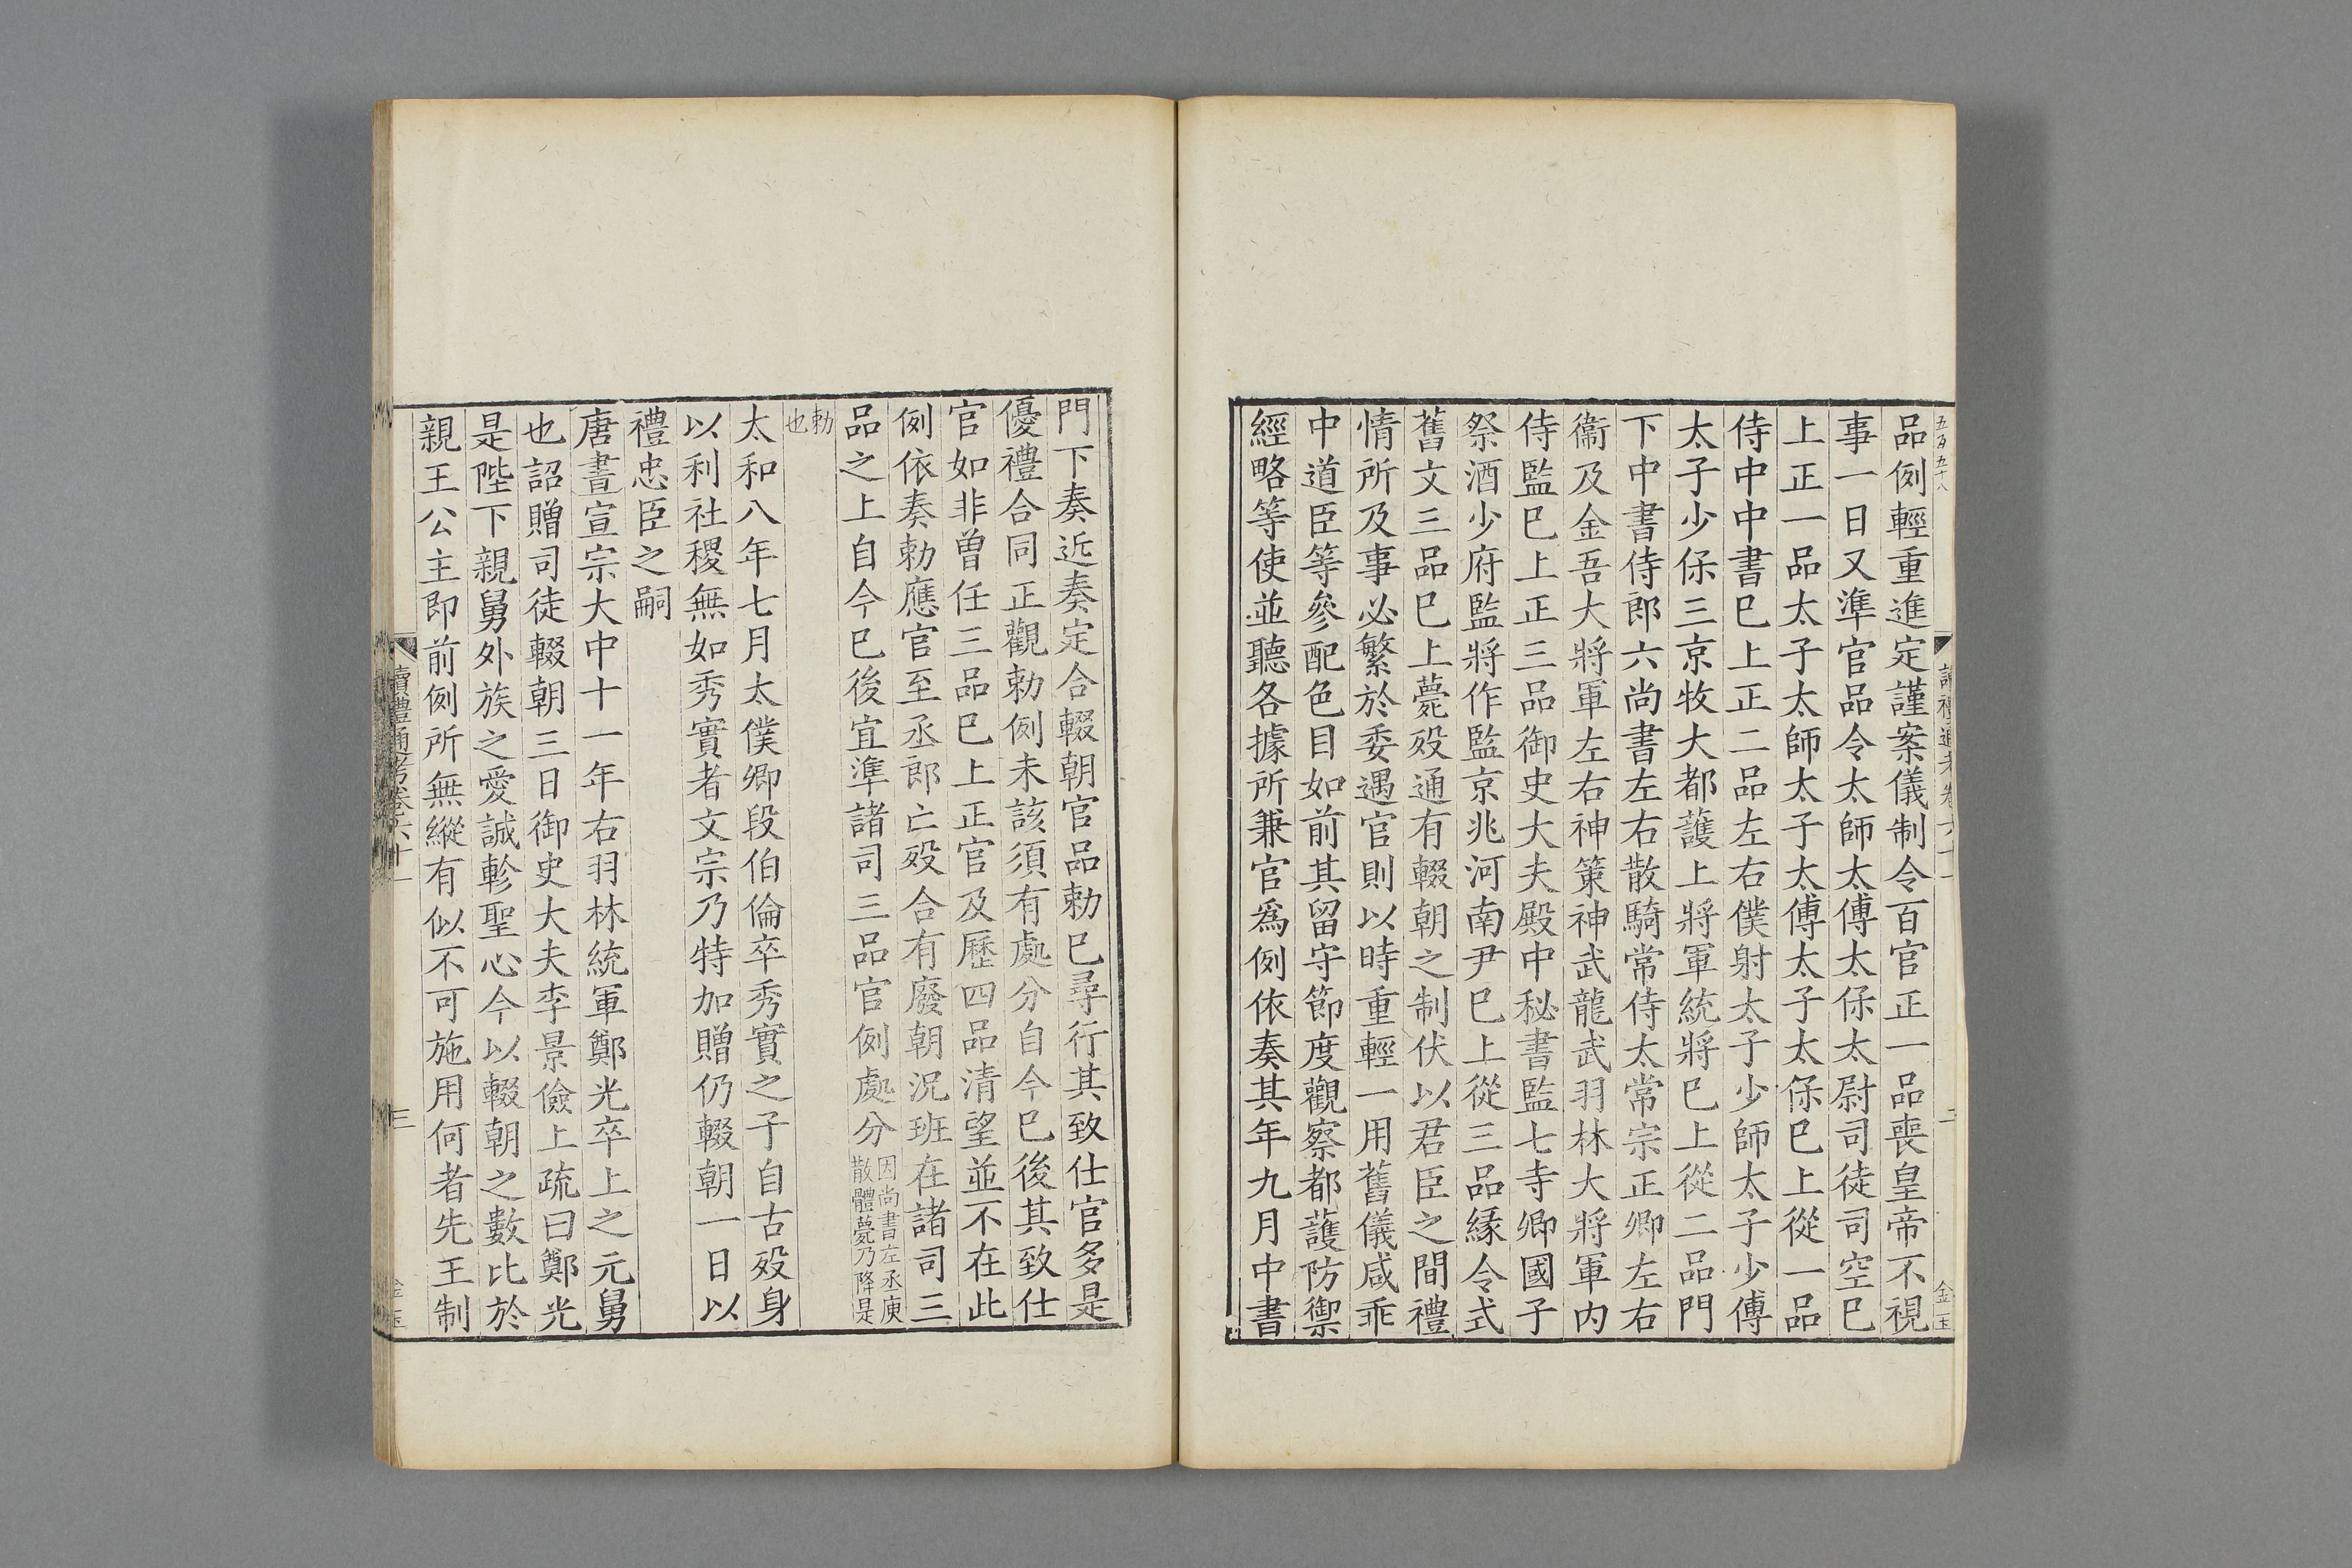 五百五十八
品例輕重進定謹案儀制令百官正一品喪皇帝不視
事一日又準官品令太師太傅太保太尉司徒司空巳
上正一品太子太師太子太傅太子太保巳上從一品
侍中中書巳上正二品左右僕射太子少師太子少傅
太子少保三京牧大都護上將軍統將巳上從二品門
下中書侍郎六尚書左右散騎常侍太常宗正卿左右
衞及金吾大將軍左右神策神武龍武羽林大將軍内
侍監巳上正三品御史大夫殿中秘書監七寺卿國子
祭酒少府監將作監京兆河南尹巳上從三品縁令式
舊文三品巳上薨歿通有輟朝之制伏以君臣之間禮
情所及事必繁於委遇官則以時重輕一用舊儀咸乖
中道臣等參配色目如前其留守節度觀察都護防禦
經略等使並聽各據所兼官爲例依奏其年九月中書
門下奏近奏定合輟朝官品勅巳尋行其致仕官多是
優禮合同正觀勅例未該須有處分自今巳後其致仕
官如非曽任三品巳上正官及歷四品清望並不在此
例依奏勅應官至丞郎亡歿合有廢朝況班在諸司三
品之上自今巳後宜準諸司三品官例處分因尚書左丞庾
散體薨乃降是
勅
也
太和八年七月太僕卿段伯倫卒秀實之子自古歿身
以利社稷無如秀實者文宗乃特加贈仍輟朝一日以
禮忠臣之嗣
唐書宣宗大中十一年右羽林統軍鄭光卒上之元舅
也詔贈司徒輟朝三日御史大夫李景儉上疏曰鄭光
是陛下親舅外族之愛誠軫聖心今以輟朝之數比於
親王公主即前例所無縱有似不可施用何者先王制
讀禮通考卷六十一
三